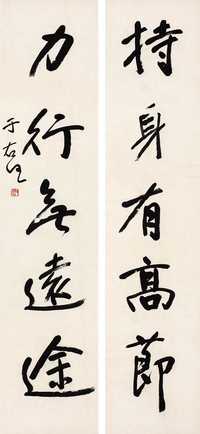 持身有高節
力行無遠途
于右任